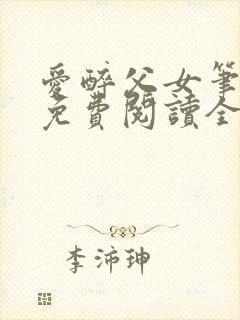 愛醉父女筆
免費閱讀全
李沛珅